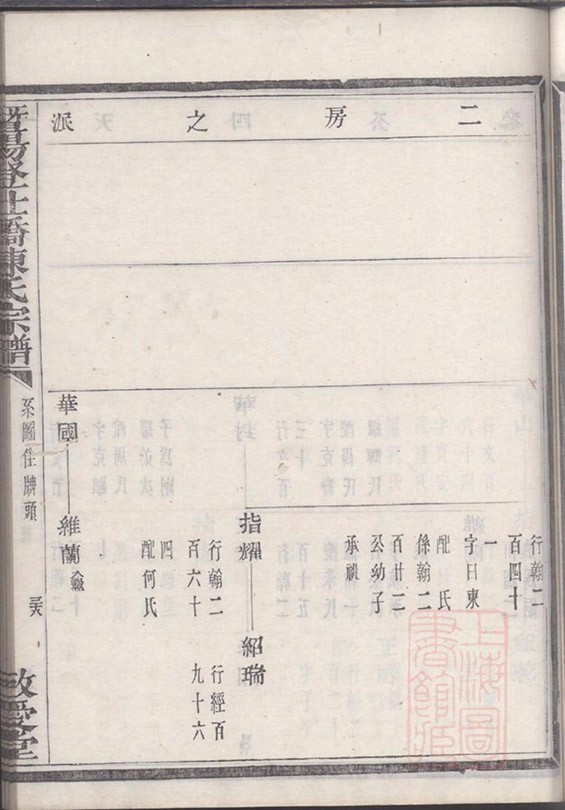 二房之派
行翰二
百四十
一
字日東
配口氏
係翰二
百廿三
公幼子
承祧
指耀
紹瑞
行翰二
百六十
四
配何氏
行經百
九十六
華國
維蘭
暨陽登仕橋陳氏宗譜
系圖住牌頭
敬愛堂
上海圖書館藏